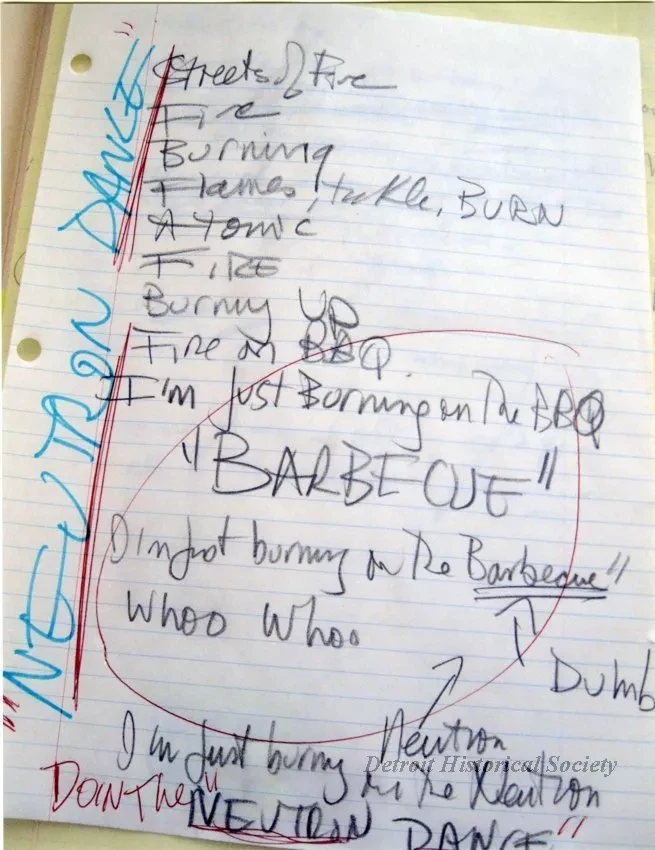 "NEUTRON DANCE"
Streets of Fire
Fire
Burning
Flames, tackle, BURN
Atomic
FIRE
Burning UP
Fire on BBQ
I'm Just Burning on The BBQ
"BARBECUE"
I'm just burning on the Barbeque"
WHOO WHOO
Dumb
Neutron
I'm just burning on the Neutron
Detroit Historical Society
Doin The "NEUTRON DANCE"